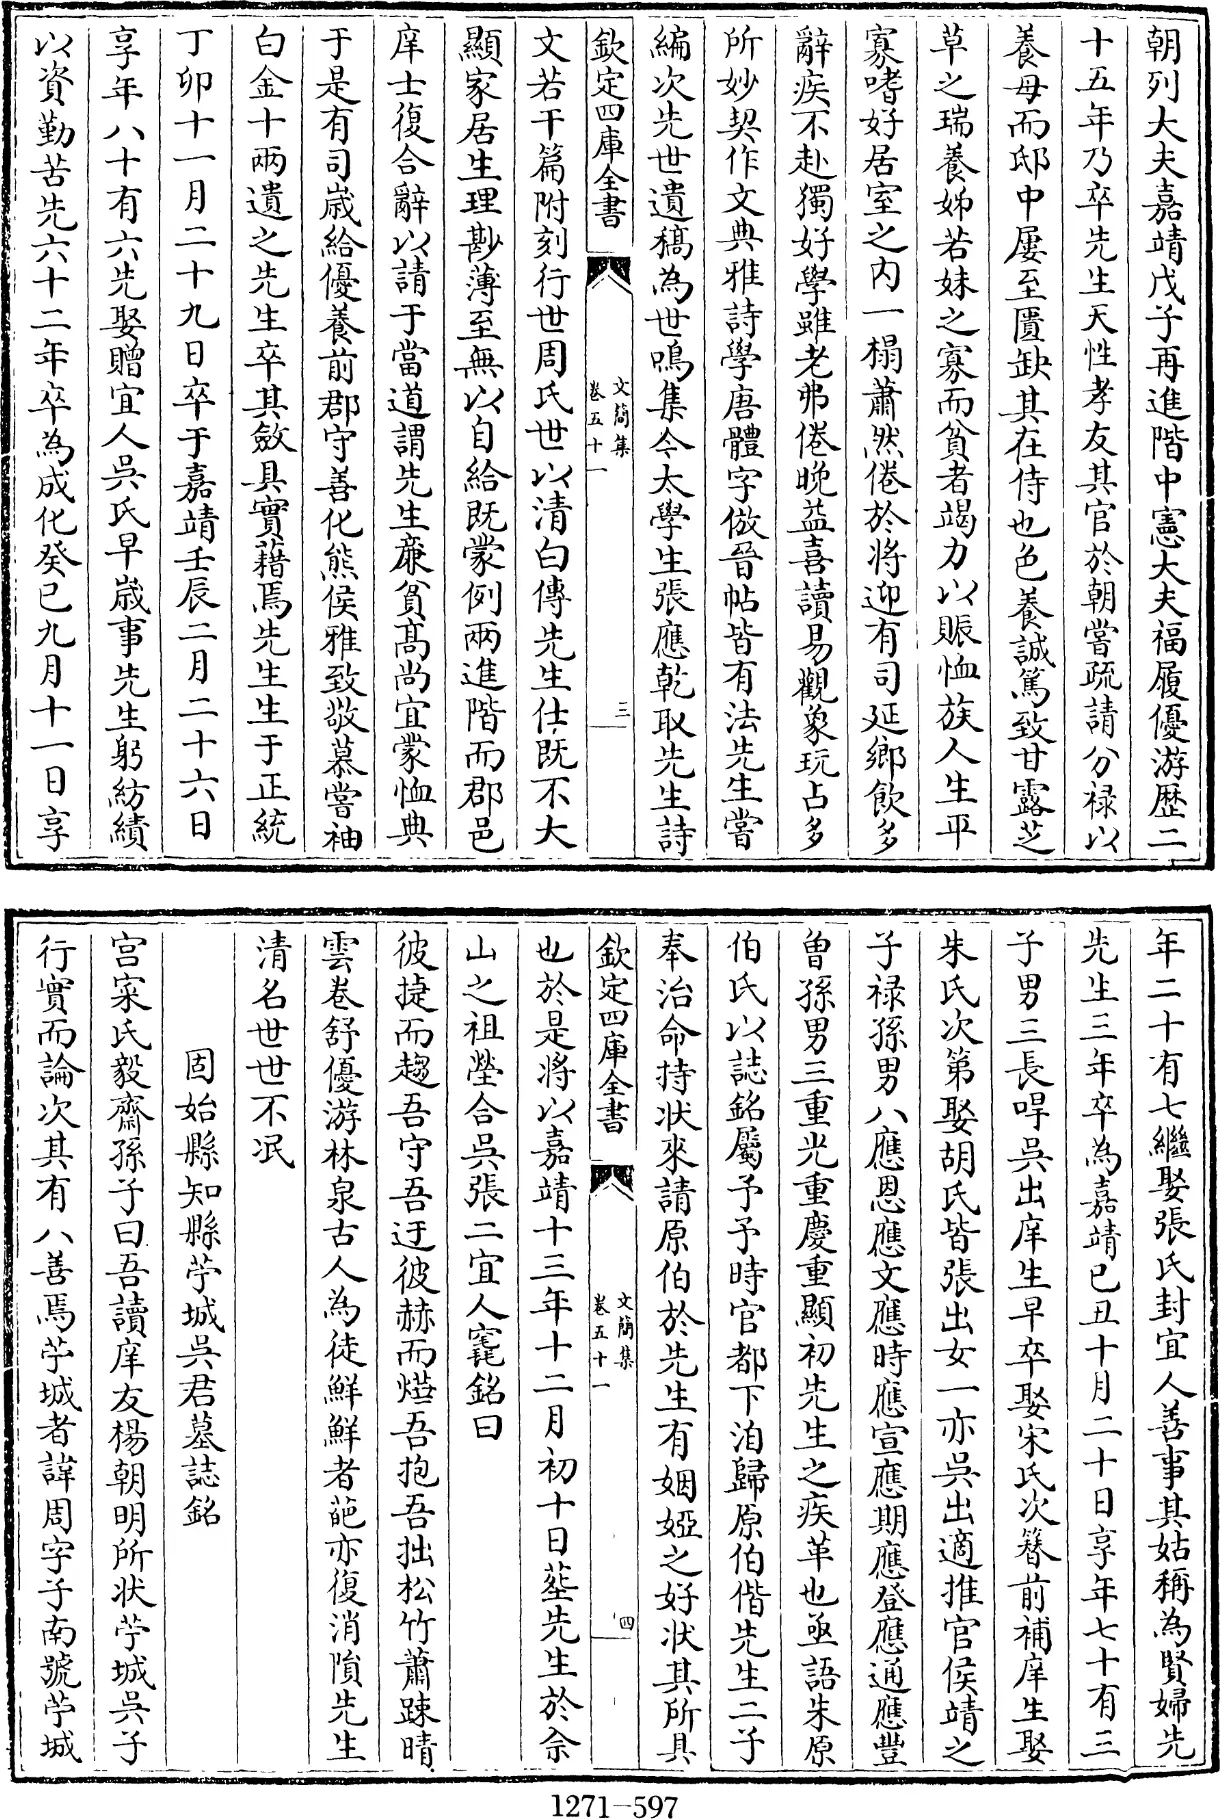 朝列大夫嘉靖戊子再進階中憲大夫福履優游歴二
十五年乃卒先生天性孝友其官於朝嘗疏請分禄以
養母而邸中屢至匱缺其在侍也色養誠篤致甘露芝
草之瑞養姊若妹之寡而貧者竭力以賑恤族人生平
寡嗜好居室之内一榻蕭然倦於將迎有司延鄉飲多
辭疾不赴獨好學雖老弗倦晚益喜讀易觀象玩占多
所妙契作文典雅詩學唐體字倣晉帖皆有法先生嘗
編次先世遺稿為世鳴集今太學生張應乾取先生詩
欽定四庫全書
文簡集
卷五十一
三
文若干篇附刻行世周氏世以清白傳先生仕既不大
顯家居生理尠薄至無以自給既蒙例兩進階而郡邑
庠士復合辭以請于當道謂先生亷貧髙尚宜蒙恤典
于是有司嵗給優養前郡守善化熊侯雅致敬慕嘗袖
白金十兩遺之先生卒其斂具實藉焉先生生于正統
丁卯十一月二十九日卒于嘉靖壬辰二月二十六日
享年八十有六先娶贈宜人吳氏早嵗事先生躬紡績
以資勤苦先六十二年卒為成化癸巳九月十一日享
年二十有七繼娶張氏封宜人善事其姑稱為賢婦先
先生三年卒為嘉靖己丑十月二十日享年七十有三
子男三長㫜吳出庠生早卒娶宋氏次簪前補庠生娶
朱氏次第娶胡氏皆張出女一亦吳出適推官侯靖之
子禄孫男八應恩應文應時應宣應期應登應通應豐
曽孫男三重光重慶重顯初先生之疾革也亟語朱原
伯氏以誌銘屬予予時官都下洎歸原伯偕先生二子
奉治命持狀來請原伯於先生有姻婭之好狀其所具
欽定四庫全書
文簡集
卷五十一
四
也於是將以嘉靖十三年十二月初十日塟先生於佘
山之祖塋合吳張二宜人窀銘曰
彼捷而趨吾守吾迂彼赫而㷼吾抱吾拙松竹蕭踈晴
雲卷舒優游林泉古人為徒鮮鮮者葩亦復消隕先生
清名世世不泯
固始縣知縣苧城吳君墓誌銘
宫寀氏毅齋孫子曰吾讀庠友楊朝明所狀苧城吳子
行實而論次其有八善焉苧城者諱周字子南號苧城
1271-597